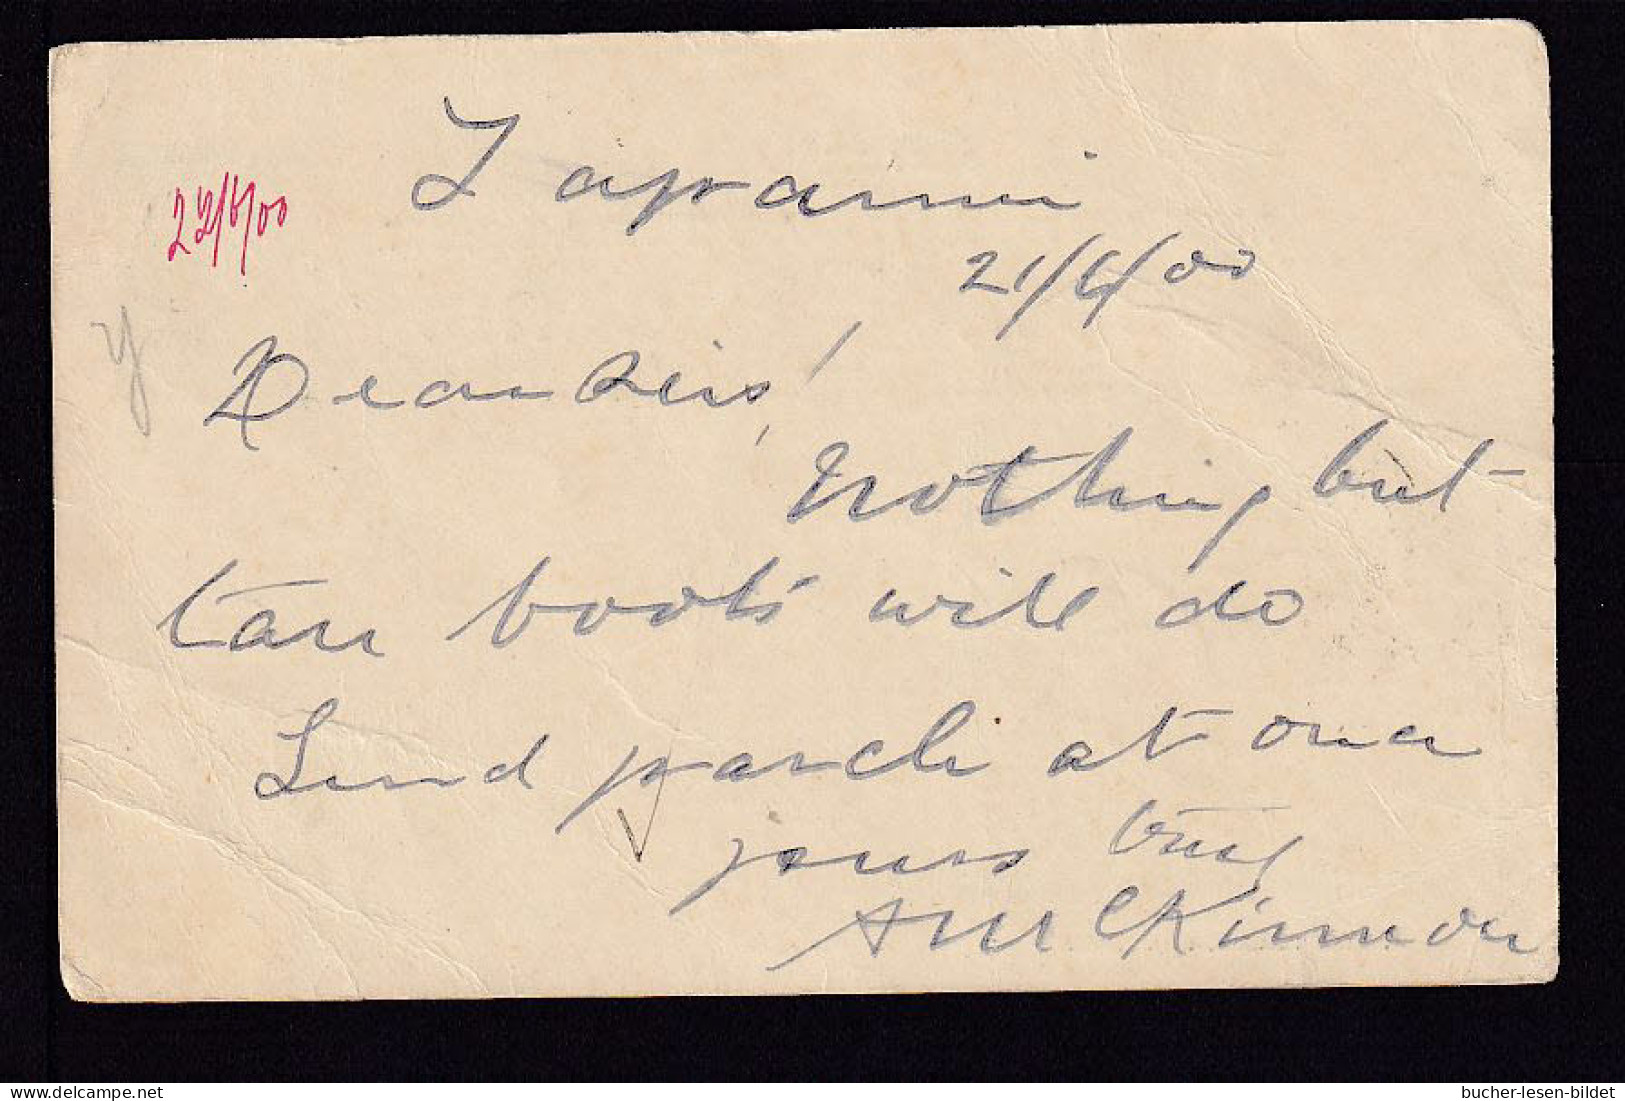 Tapanui
22/6/00
21/6/00
y
Dear Sirs!
Nothing but
tan boots will do
Send parcle at once
yours truly
A McKinnon
bucher-lesen-bildet